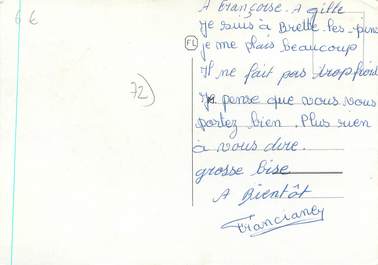 6 €
72)
FL
A Françoise. A gille
Je suis à Brette. les. pins
je me plais beaucoup
Il ne fait pas trop froid
Je pense que vous vous
portez bien. Plus rien
à vous dire.
grosse bise
A Bientôt